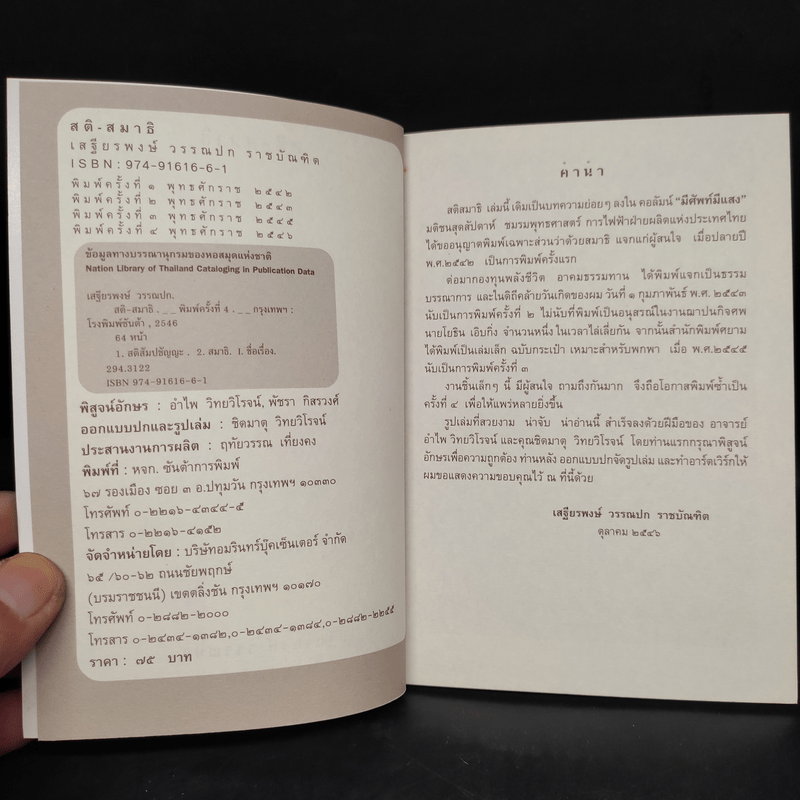 สติ-สมาธิ
เสฐียรพงษ์ วรรณปก ราชบัณฑิต
ISBN : 974-91616-6-1
พิมพ์ครั้งที่ ๑ พุทธศักราช ๒๕๔๒
พิมพ์ครั้งที่ ๒ พุทธศักราช ๒๕๔๓
พิมพ์ครั้งที่ ๓ พุทธศักราช ๒๕๔๕
พิมพ์ครั้งที่ ๔ พุทธศักราช ๒๕๔๖
ข้อมูลทางบรรณานุกรมของหอสมุดแห่งชาติ
Nation Library of Thailand Cataloging in Publication Data
เสฐียรพงษ์ วรรณปก.
สติ-สมาธิ . _ _ พิมพ์ครั้งที่ 4 . _ _ กรุงเทพฯ :
โรงพิมพ์ซันต้า , 2546
64 หน้า
1. สติสัมปชัญญะ . 2. สมาธิ. I. ชื่อเรื่อง.
294.3122
ISBN 974-91616-6-1
พิสูจน์อักษร : อำไพ วิทยวิโรจน์, พัชรา กิสรวงศ์
ออกแบบปกและรูปเล่ม : ชิดมาตุ วิทยวิโรจน์
ประสานงานการผลิต : ฤทัยวรรณ เที่ยงคง
พิมพ์ที่ : หจก. ซันต้าการพิมพ์
๖๗ รองเมือง ซอย ๓ อ.ปทุมวัน กรุงเทพฯ ๑๐๓๓๐
โทรศัพท์ ๐-๒๒๑๖-๔๓๔๔-๕
โทรสาร ๐-๒๒๑๖-๔๑๕๒
จัดจำหน่ายโดย : บริษัทอมรินทร์บุ๊คเซ็นเตอร์ จำกัด
๖๕ /๖๐-๖๒ ถนนชัยพฤกษ์
(บรมราชชนนี) เขตตลิ่งชัน กรุงเทพฯ ๑๐๑๗๐
โทรศัพท์ ๐-๒๘๘๒-๒๐๐๐
โทรสาร ๐-๒๔๓๔-๑๓๘๒,๐-๒๔๓๔-๑๓๘๔,๐-๒๘๘๒-๒๒๕๕
ราคา : ๗๕ บาท
คำนำ
สติสมาธิ เล่มนี้ เดิมเป็นบทความย่อยๆ ลงใน คอลัมน์ "มีศัพท์มีแสง"
มติชนสุดสัปดาห์ ชมรมพุทธศาสตร์ การไฟฟ้าฝ่ายผลิตแห่งประเทศไทย
ได้ขออนุญาตพิมพ์เฉพาะส่วนว่าด้วยสมาธิ แจกแก่ผู้สนใจ เมื่อปลายปี
พ.ศ.๒๕๔๒ เป็นการพิมพ์ครั้งแรก
ต่อมากองทุนพลังชีวิต อาคมธรรมทาน ได้พิมพ์แจกเป็นธรรม
บรรณาการ และในดิถีคล้ายวันเกิดของผม วันที่ ๑ กุมภาพันธ์ พ.ศ. ๒๕๔๓
นับเป็นการพิมพ์ครั้งที่ ๒ ไม่นับที่พิมพ์เป็นอนุสรณ์ในงานฌาปนกิจศพ
นายโยธิน เอิบกิ่ง จำนวนหนึ่ง ในเวลาไล่เลี่ยกัน จากนั้นสำนักพิมพ์ศยาม
ได้พิมพ์เป็นเล่มเล็ก ฉบับกระเป๋า เหมาะสำหรับพกพา เมื่อ พ.ศ.๒๕๔๕
นับเป็นการพิมพ์ครั้งที่ ๓
งานชิ้นเล็กๆ นี้ มีผู้สนใจ ถามถึงกันมาก จึงถือโอกาสพิมพ์ซ้ำเป็น
ครั้งที่ ๔ เพื่อให้แพร่หลายยิ่งขึ้น
รูปเล่มที่สวยงาม น่าจับ น่าอ่านนี้ สำเร็จลงด้วยฝีมือของ อาจารย์
อำไพ วิทยวิโรจน์ และคุณชิดมาตุ วิทยวิโรจน์ โดยท่านแรกกรุณาพิสูจน์
อักษรเพื่อความถูกต้อง ท่านหลัง ออกแบบปกจัดรูปเล่ม และทำอาร์ตเวิร์กให้
ผมขอแสดงความขอบคุณไว้ ณ ที่นี้ด้วย
เสฐียรพงษ์ วรรณปก ราชบัณฑิต
ตุลาคม ๒๕๔๖